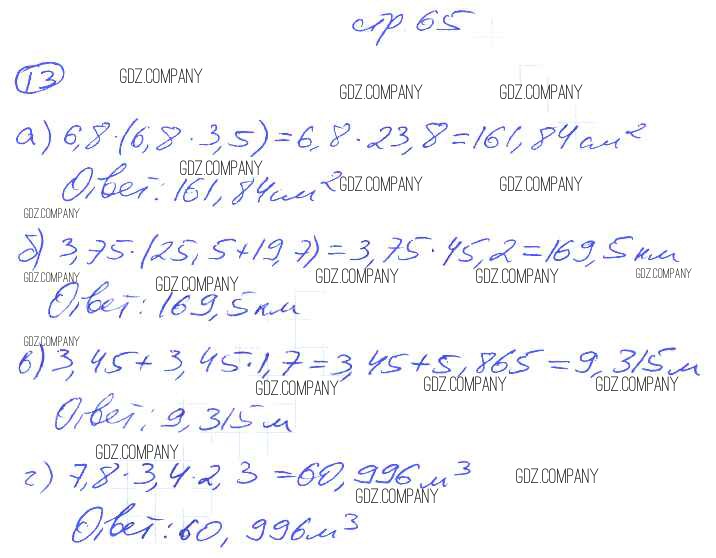 стр 65
13 GDZ.COMPANY
GDZ.COMPANY GDZ.COMPANY
а) 6,8·(6,8·3,5)=6,8·23,8=161,84см²
GDZ.COMPANY
Ответ: 161,84см² GDZ.COMPANY GDZ.COMPANY
GDZ.COMPANY
б) 3,75·(25,5+19,7)=3,75·45,2=169,5км
GDZ.COMPANY GDZ.COMPANY GDZ.COMPANY GDZ.COMPANY GDZ.COMPANY
Ответ: 169,5км
GDZ.COMPANY
в) 3,45+3,45·1,7=3,45+5,865=9,315м
GDZ.COMPANY GDZ.COMPANY GDZ.COMPANY
Ответ: 9,315м
GDZ.COMPANY
г) 7,8·3,4·2,3=60,996м³ GDZ.COMPANY
GDZ.COMPANY
Ответ: 60,996м³